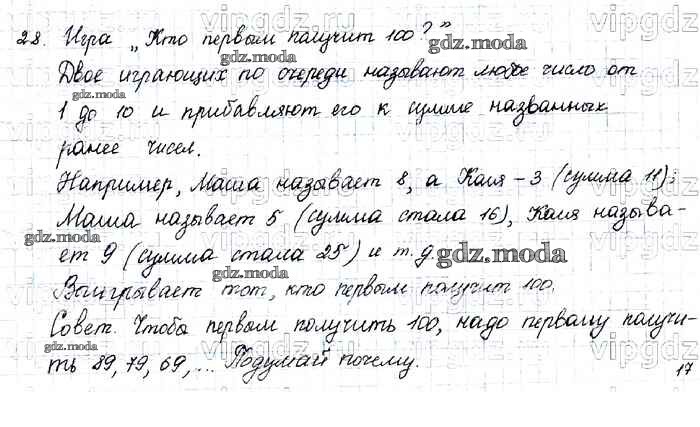 28. Игра „Кто первым получит 100?"
Двое играющих по очереди называют любое число от
1 до 10 и прибавляют его к сумме названных
ранее чисел.
Например, Маша называет 8, а Коля – 3 (сумма 11);
Маша называет 5 (сумма стала 16), Коля называ-
ет 9 (сумма стала 25) и т.д.
Выигрывает тот, кто первым получит 100.
Совет. Чтобы первым получить 100, надо первому получи-
ть 89, 79, 69, ... Подумай почему.
17
vipgdz
gdz.moda